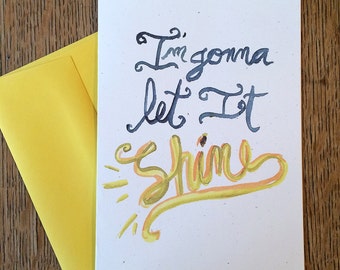 I'm gonna
let It
Shine